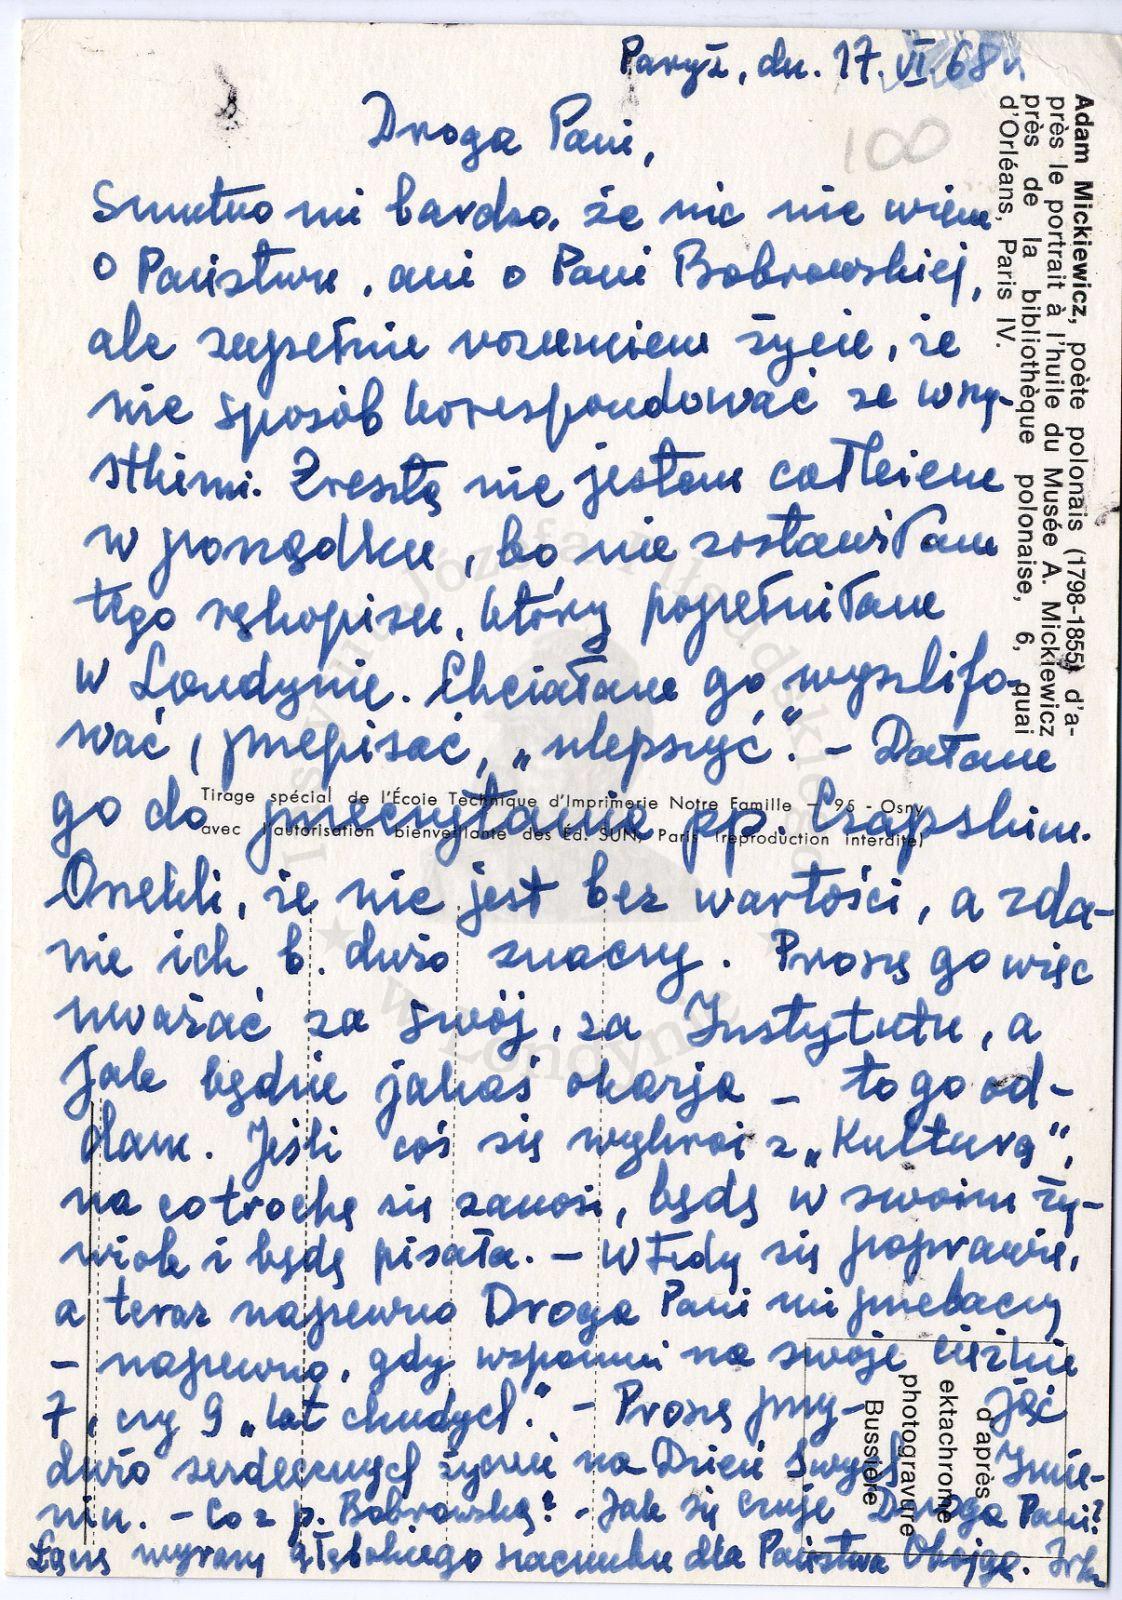 Paryż, dn. 17. VI. 68 r.
100
Droga Pani,
Smutno mi bardzo, że nic nie wiem
o Państwu, ani o Pani Bobrowskiej,
ale zupełnie rozumiem życie, że
nie sposób korespondować ze wszy-
stkimi. Zresztą nie jestem całkiem
w porządku, bo nie zostawiłam
tego rękopisu, który popełniłam
w Londynie. Chciałam go wyszlifo-
wać, przepisać, „ulepszyć”. – Dałam
go do przeczytania pp. Czapskim.
Orzekli, że nie jest bez wartości, a zda-
nie ich b. dużo znaczy. Proszę go więc
uważać za swój, za Instytutu, a
jak będzie jakaś okazja – to go od-
dam. Jeśli coś się wykroi z „Kulturą”,
na co trochę się zanosi, będę w swoim ży-
wiole i będę pisała. – Wtedy się poprawię,
a teraz napewno Droga Pani mi przebaczy
– napewno, gdy wspomni na swoje ciężkie
7, czy 9 „lat chudych.” – Proszę przy-
jąć
dużo serdecznych życzeń na Dzień Swych Imie-
nin. – Co z p. Bobrowską? – Jak się czuje Droga Pani?
Łączę wyrazy głębokiego szacunku dla Państwa Obojga. Irka
Adam Mickiewicz, poète polonais (1798-1855) d'a-
près le portrait à l'huile du Musée A. Mickiewicz
près de la bibliothèque polonaise, 6, quai
d'Orléans, Paris IV.
Tirage spécial de l'École Technique d'Imprimerie Notre Famille – 95 - Osny
avec l'autorisation bienveillante des Éd. SUN, Paris (reproduction interdite)
d'après
ektachrome
photogravure
Bussière
Instytut Józefa Piłsudskiego
w Londynie